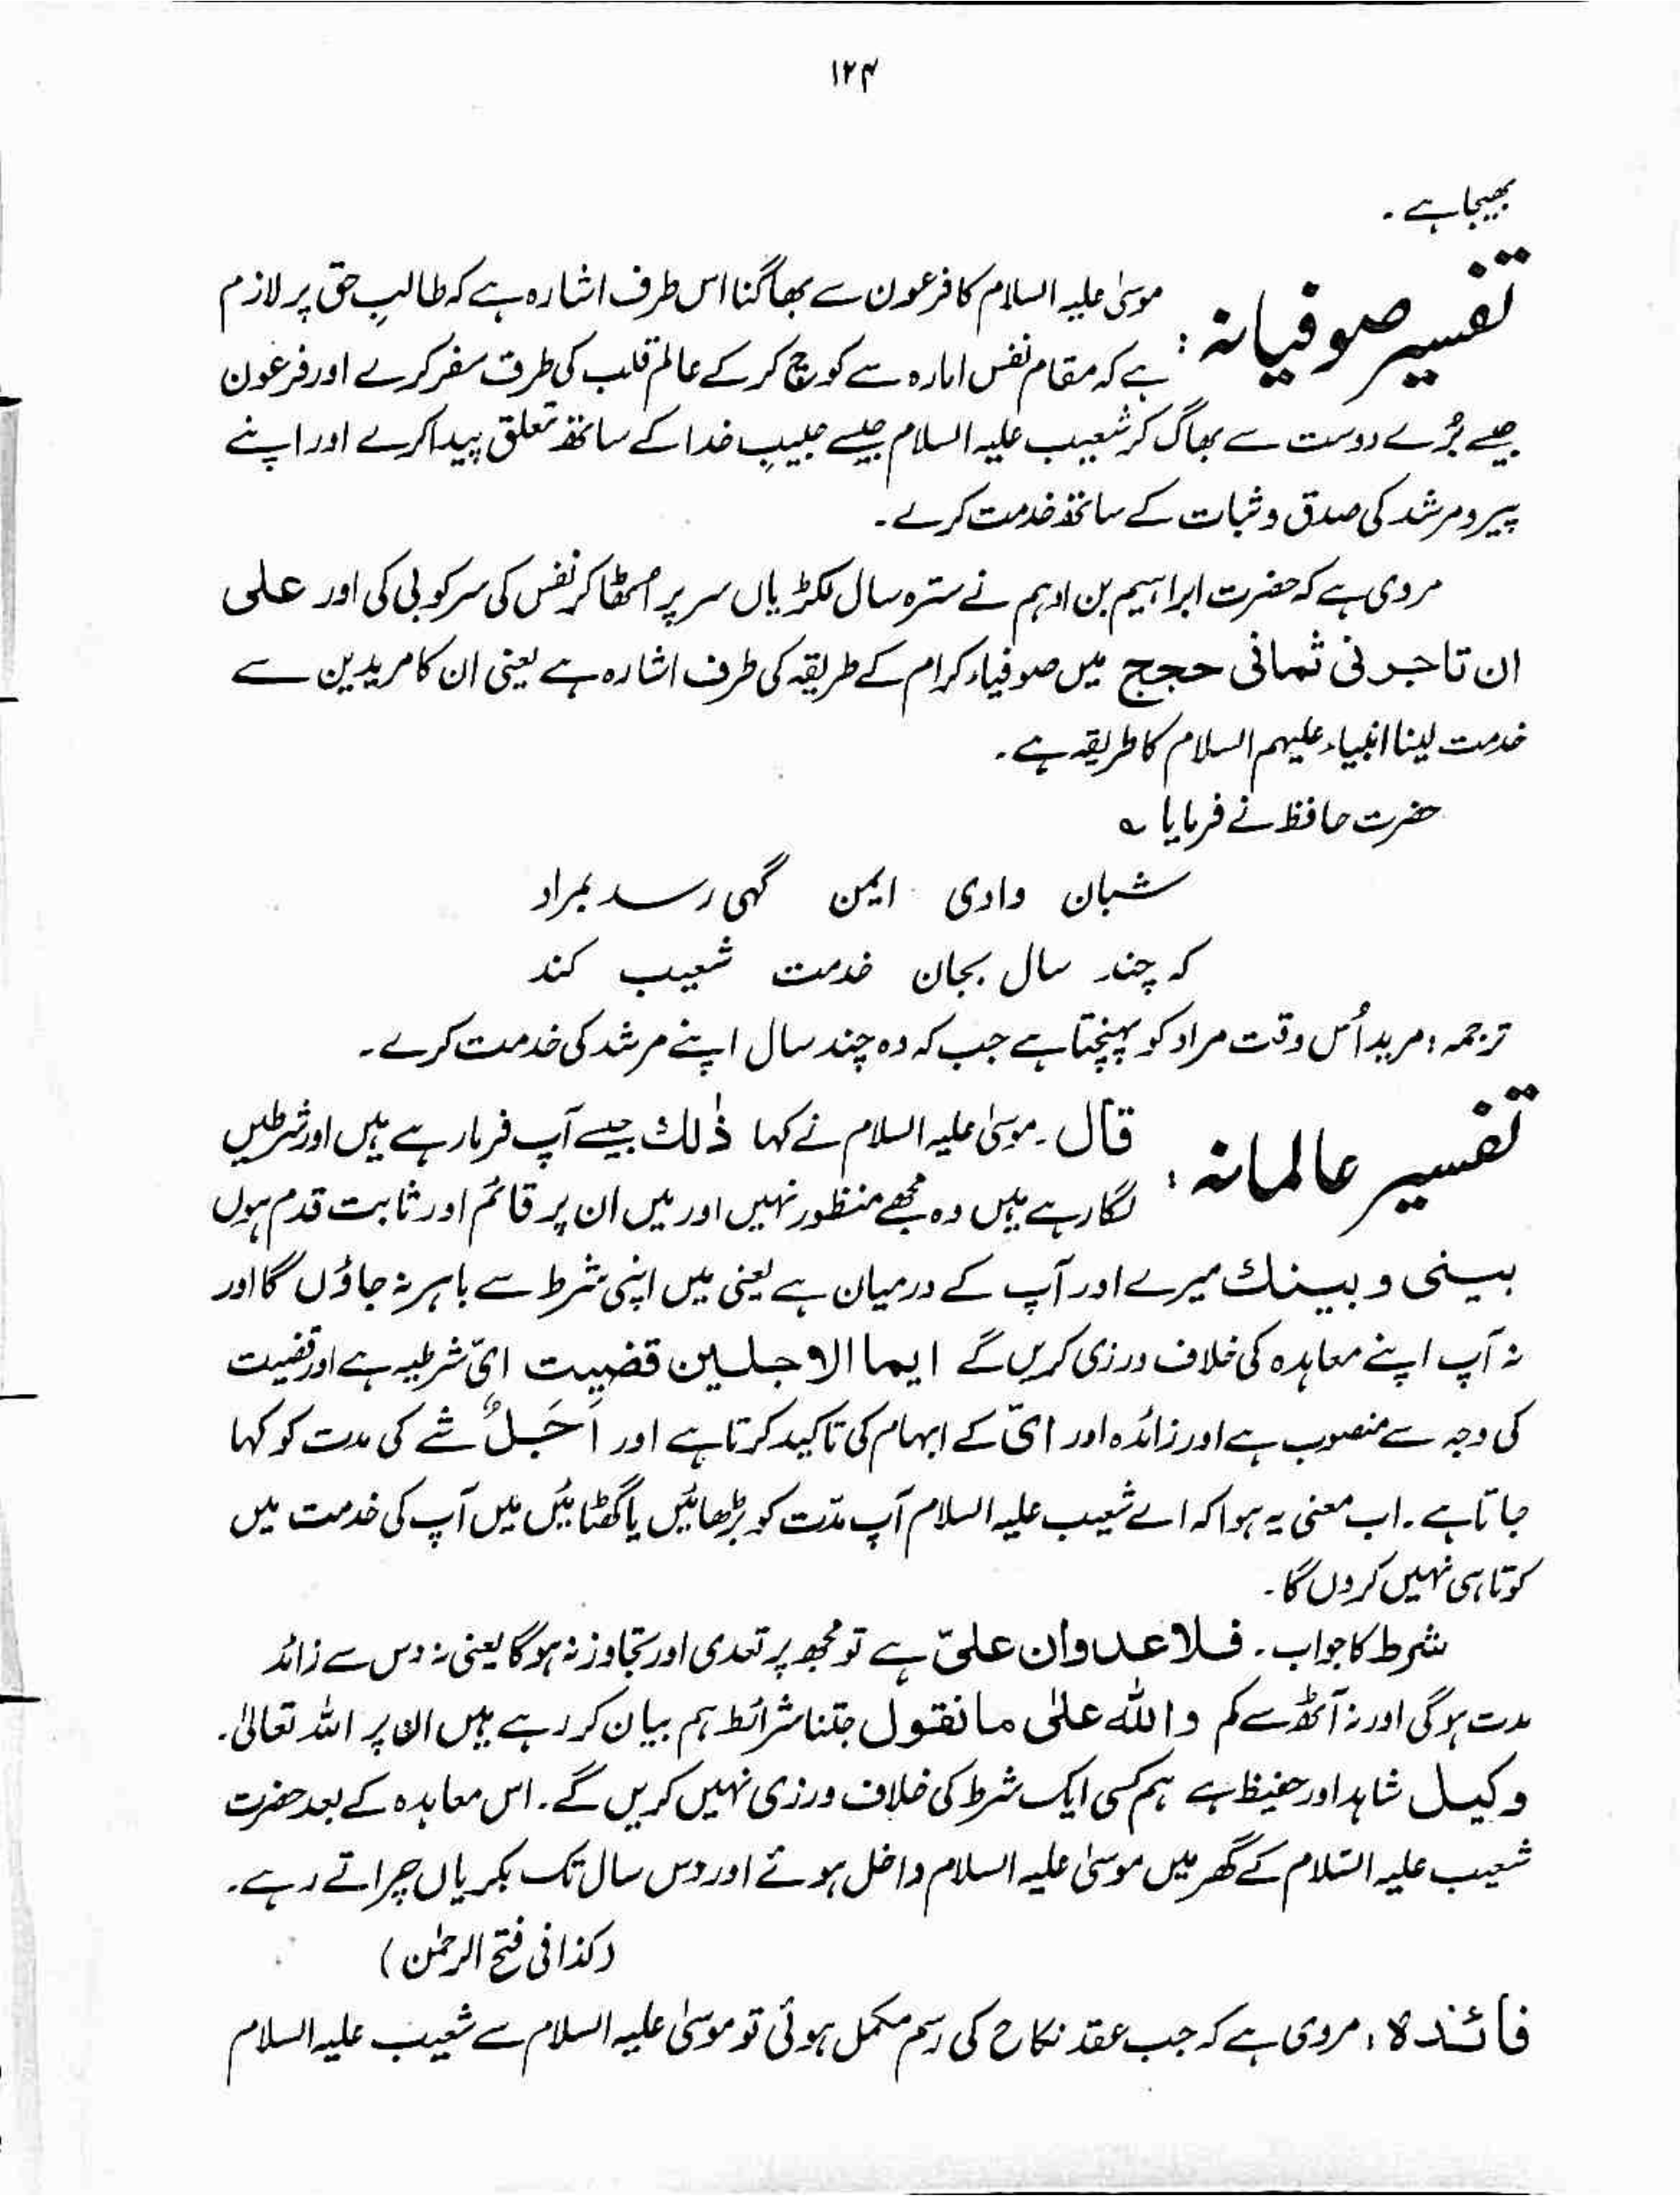 ۱۲۴
بھیجا ہے ۔
تفسیر صوفیانہ : موسیٰ علیہ السلام کا فرعون سے بھاگنا اس طرف اشارہ ہے کہ طالبِ حق پر لازم
ہے کہ مقام نفس امارہ سے کوچ کر کے عالم قلب کی طرف سفر کرے اور فرعون
جیسے بُرے دوست سے بھاگ کر شعیب علیہ السلام جیسے حبیبِ خدا کے ساتھ تعلق پیدا کرے اور اپنے
پیر و مرشد کی صدق و ثبات کے ساتھ خدمت کرے ۔
مروی ہے کہ حضرت ابراہیم بن ادہم نے سترہ سال لکڑیاں سر پر اٹھا کر نفس کی سرکوبی کی اور علی
ان تاجرنی ثمانی حجج میں صوفیاء کرام کے طریقہ کی طرف اشارہ ہے یعنی ان کا مریدین سے
خدمت لینا انبیاء علیہم السلام کا طریقہ ہے ۔
حضرت حافظ نے فرمایا ؎
شبان وادی ایمن گہی رسد بمراد
کہ چند سال بجان خدمت شعیب کند
ترجمہ : مرید اُس وقت مراد کو پہنچتا ہے جب کہ وہ چند سال اپنے مرشد کی خدمت کرے ۔
تفسیر عالمانہ : قال ۔ موسیٰ علیہ السلام نے کہا ذٰلك جیسے آپ فرما رہے ہیں اور شرطیں
لگا رہے ہیں وہ مجھے منظور نہیں اور میں ان پر قائم اور ثابت قدم ہوں
بینی و بینك میرے اور آپ کے درمیان ہے یعنی میں اپنی شرط سے باہر نہ جاؤں گا اور
نہ آپ اپنے معاہدہ کی خلاف ورزی کریں گے ایما الاجلین قضیت ایّ شرطیہ ہے اور قضیت
کی وجہ سے منصوب ہے اور زائدہ اور ایّ کے ابہام کی تاکید کرتا ہے اور اَجَلٌ شے کی مدت کو کہا
جاتا ہے ۔ اب معنی یہ ہوا کہ اے شعیب علیہ السلام آپ مدّت کو بڑھائیں یا گھٹائیں میں آپ کی خدمت میں
کوتاہی نہیں کروں گا ۔
شرط کا جواب ۔ فلا عدوان علیّ ہے تو مجھ پر تعدی اور تجاوز نہ ہو گا یعنی نہ دس سے زائد
مدت ہو گی اور نہ آٹھ سے کم واللّٰه علیٰ ما نقول جتنا شرائط ہم بیان کر رہے ہیں ان پر اللہ تعالیٰ ۔
وکیل شاہد اور حفیظ ہے ہم کسی ایک شرط کی خلاف ورزی نہیں کریں گے ۔ اس معاہدہ کے بعد حضرت
شعیب علیہ السّلام کے گھر میں موسیٰ علیہ السلام داخل ہوئے اور دس سال تک بکریاں چراتے رہے ۔
(کذا فی فتح الرحمٰن)
فائدہ : مروی ہے کہ جب عقد نکاح کی رسم مکمل ہوئی تو موسیٰ علیہ السلام سے شعیب علیہ السلام